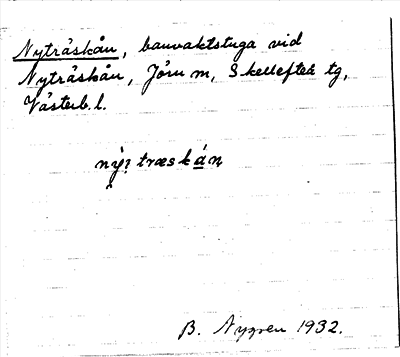 Nyträskån, banvaktstuga vid
Nyträskån, Jörn m, Skellefteå tg,
Västerb. l.
ný: træskán
B. Nygren 1932.